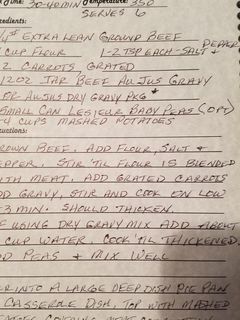 Time: 30-40 MIN Temperature: 350
SERVES 6
ngredients:
# EXTRA LEAN GROUND BEEF
CUP FLOUR 1-2 TSP EACH-SALT & PEPPER
2 CARROTS, GRATED
12 OZ JAR BEEF AU JUS GRAVY
ER AU JUS DRY GRAVY PKG *
SMALL CAN LESIEUR BABY PEAS (OPT)
4 CUPS MASHED POTATOES
tructions:
ROWN BEEF. ADD FLOUR, SALT &
EPPER. STIR 'TIL FLOUR IS BLENDED
ITH MEAT. ADD GRATED CARROTS
DD GRAVY, STIR AND COOK ON LOW
3 MIN. SHOULD THICKEN.
F USING DRY GRAVY MIX ADD ABOUT
CUP WATER. COOK 'TIL THICKENED.
DD PEAS & MIX WELL
ER INTO A LARGE DEEP DISH PIE PAN
CASSEROLE DISH. TOP WITH MASHED